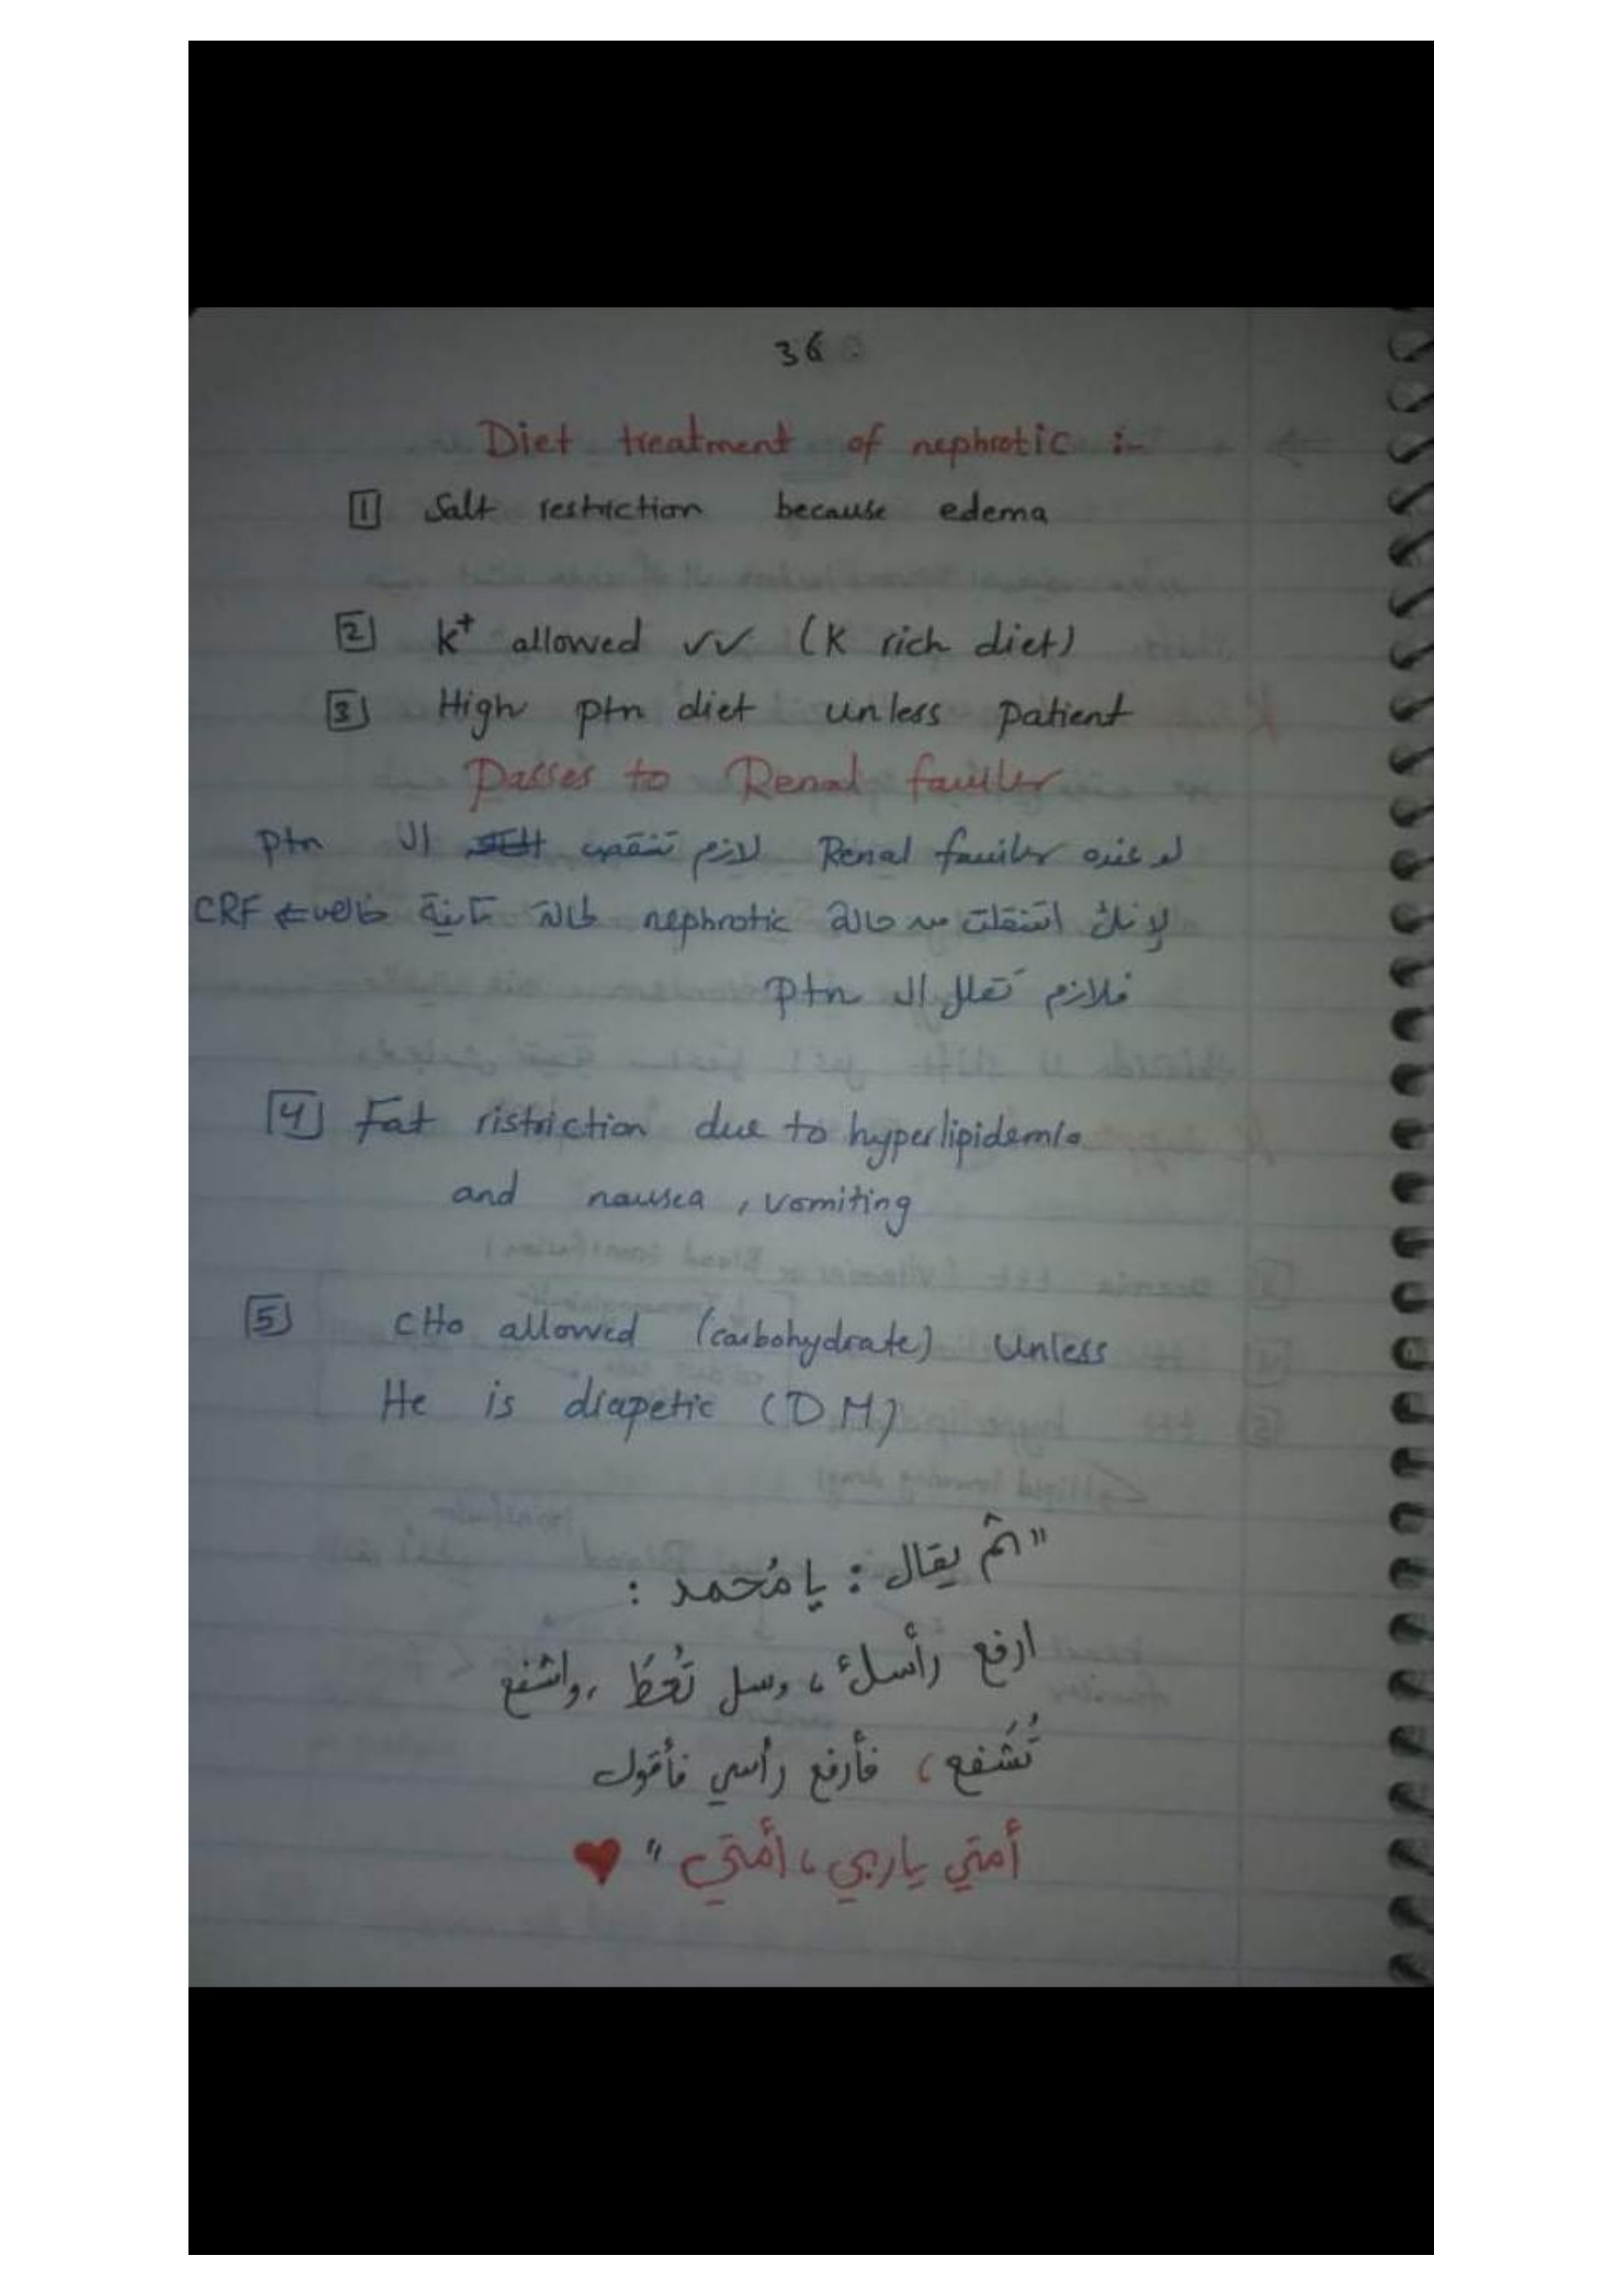 36
Diet treatment of nephrotic :-
1 Salt restriction because edema
2 K+ allowed ✓✓ (K rich diet)
3 High ptn diet unless patient
Passes to Renal fauiler
لو عنده Renal fauiler لازم تنقص ال ptn
لإنك اتنقلت من حالة nephrotic لحالة تانية خالص ⇐ CRF
فلازم تقلل ال ptn
4 Fat ristriction due to hyperlipidemia
and nausea , vomiting
5 CHo allowed (carbohydrate) Unless
He is diapetic (DM)
"ثم يقال : يا مُحمد :
ارفع رأسك ، وسل تُعطَ ، واشفع
تُشَفع ، فأرفع رأسي فأقول
أمتي ياربي ، أمتي " ♥